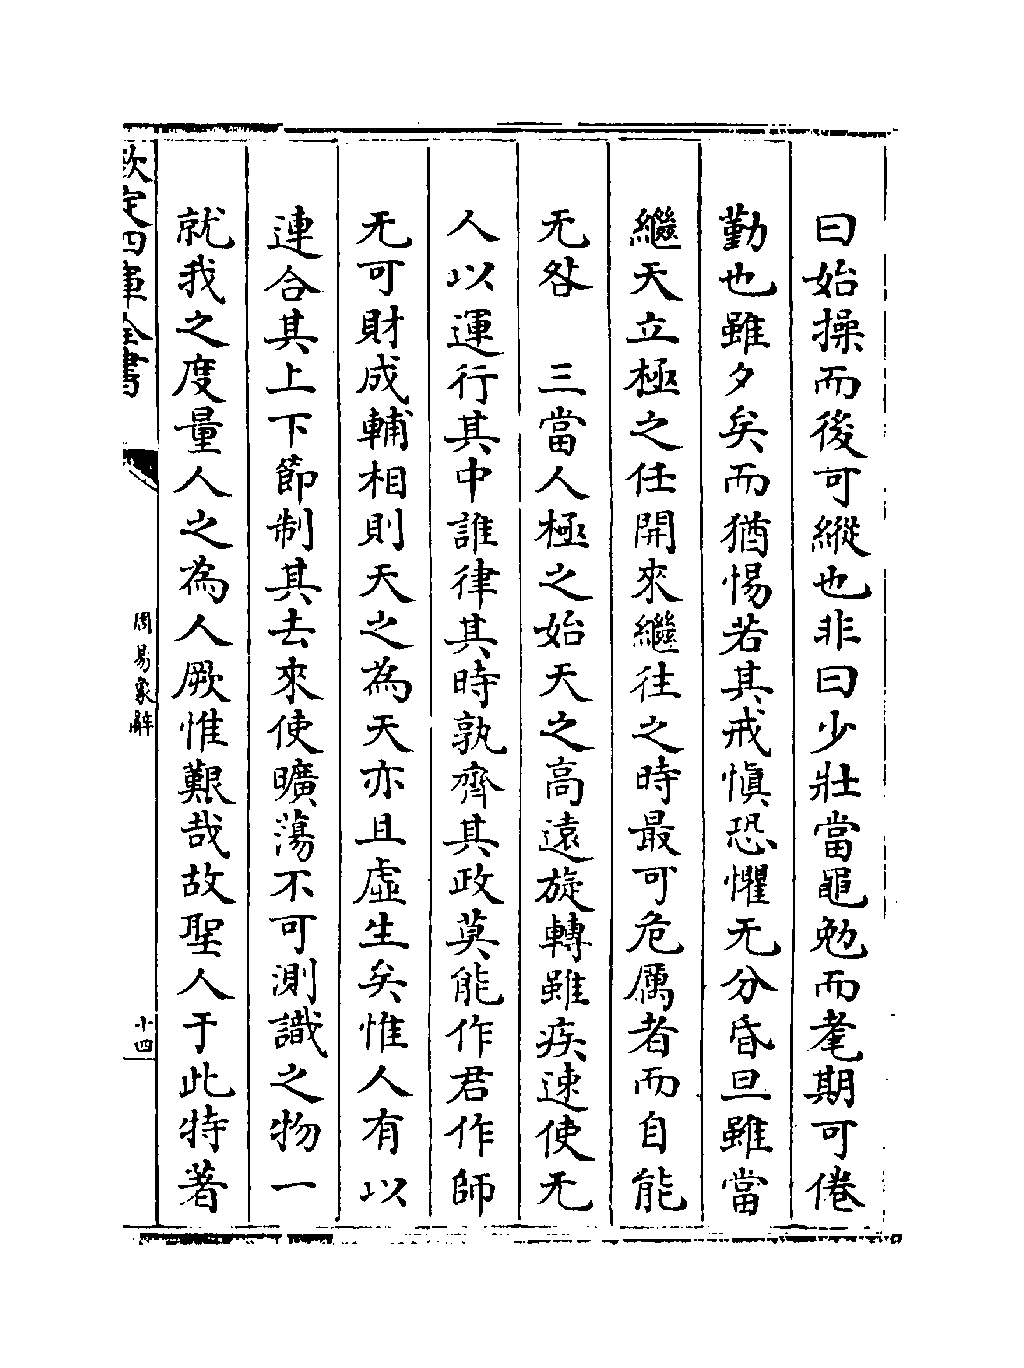 曰始操而後可縱也非曰少壯當黽勉而耄期可倦
勤也雖夕矣而猶惕若其戒慎恐懼无分昏旦雖當
繼天立極之任開來繼往之時最可危厲者而自能
无咎　三當人極之始天之高遠旋轉雖疾速使无
人以運行其中誰律其時孰齊其政莫能作君作師
无可財成輔相則天之為天亦且虛生矣惟人有以
連合其上下節制其去來使曠蕩不可測識之物一
就我之度量人之為人厥惟艱哉故聖人于此特著
欽定四庫全書
周易象辭
十四